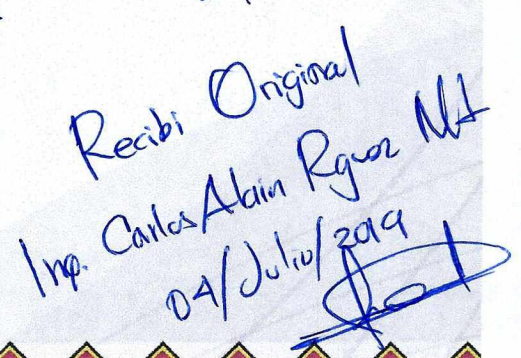 Recibi Original
Ing. Carlos Alain Rguez Mt
04/Julio/2019